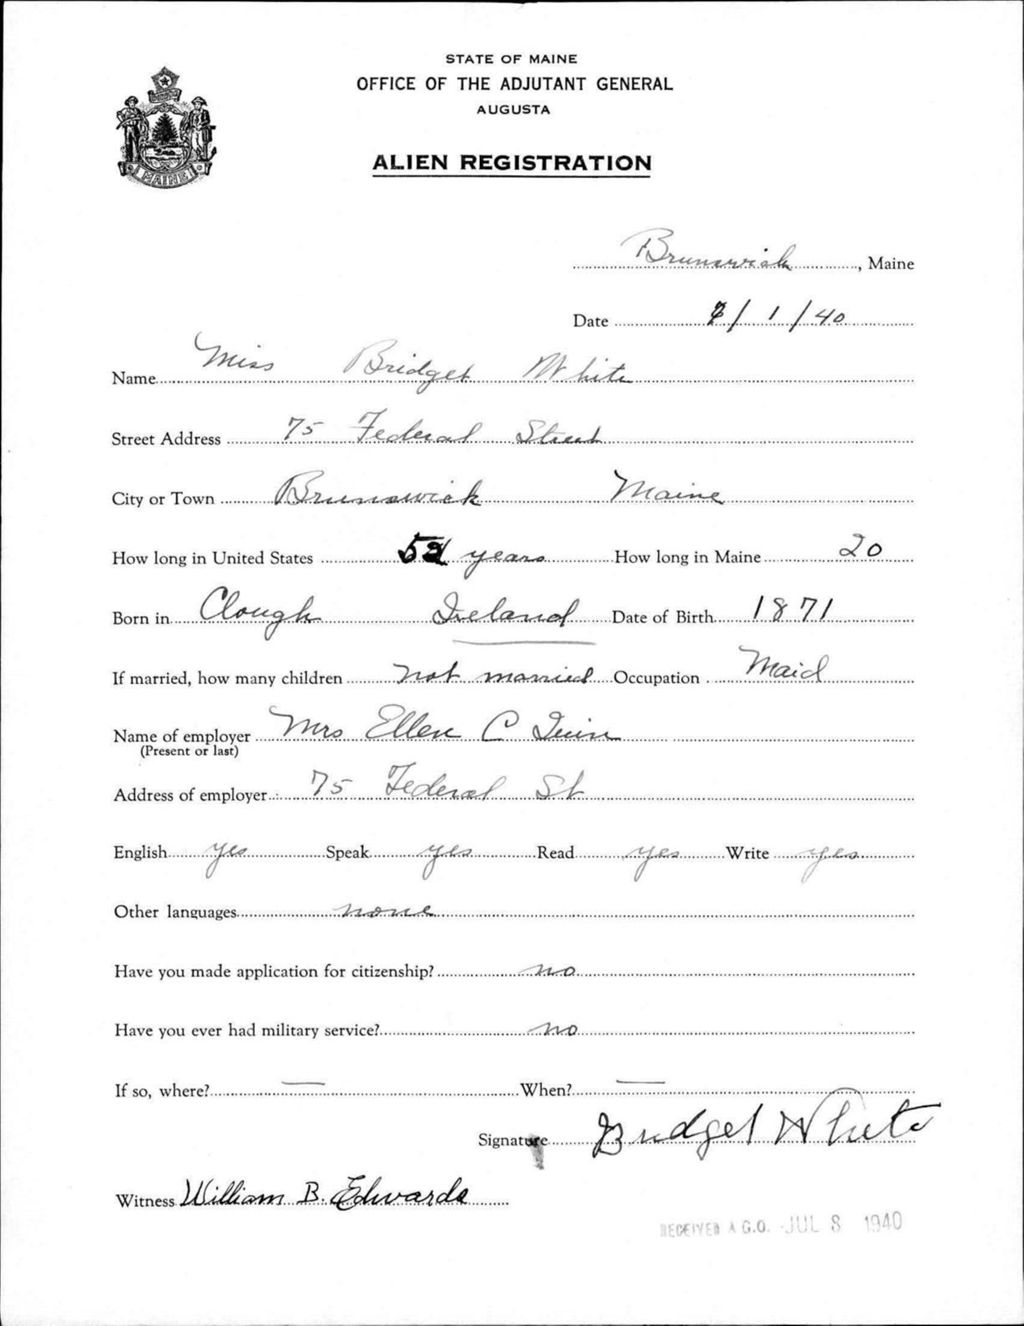 STATE OF MAINE
OFFICE OF THE ADJUTANT GENERAL
AUGUSTA
ALIEN REGISTRATION
MAINE
Brunswick, Maine
Date 7/1/40
Name Miss Bridget White
Street Address 75 Federal Street
City or Town Brunswick Maine
How long in United States 52 years How long in Maine 20
Born in Clough Ireland Date of Birth 1871
If married, how many children not married Occupation Maid
Name of employer Mrs Ellen C
(Present or last)
Address of employer 75 Federal St
English yes Speak yes Read yes Write yes
Other languages none
Have you made application for citizenship? no
Have you ever had military service? no
If so, where? — When? —
Signature Bridget White
Witness William B. Edwards
RECEIVED A.G.O. JUL 8 1940